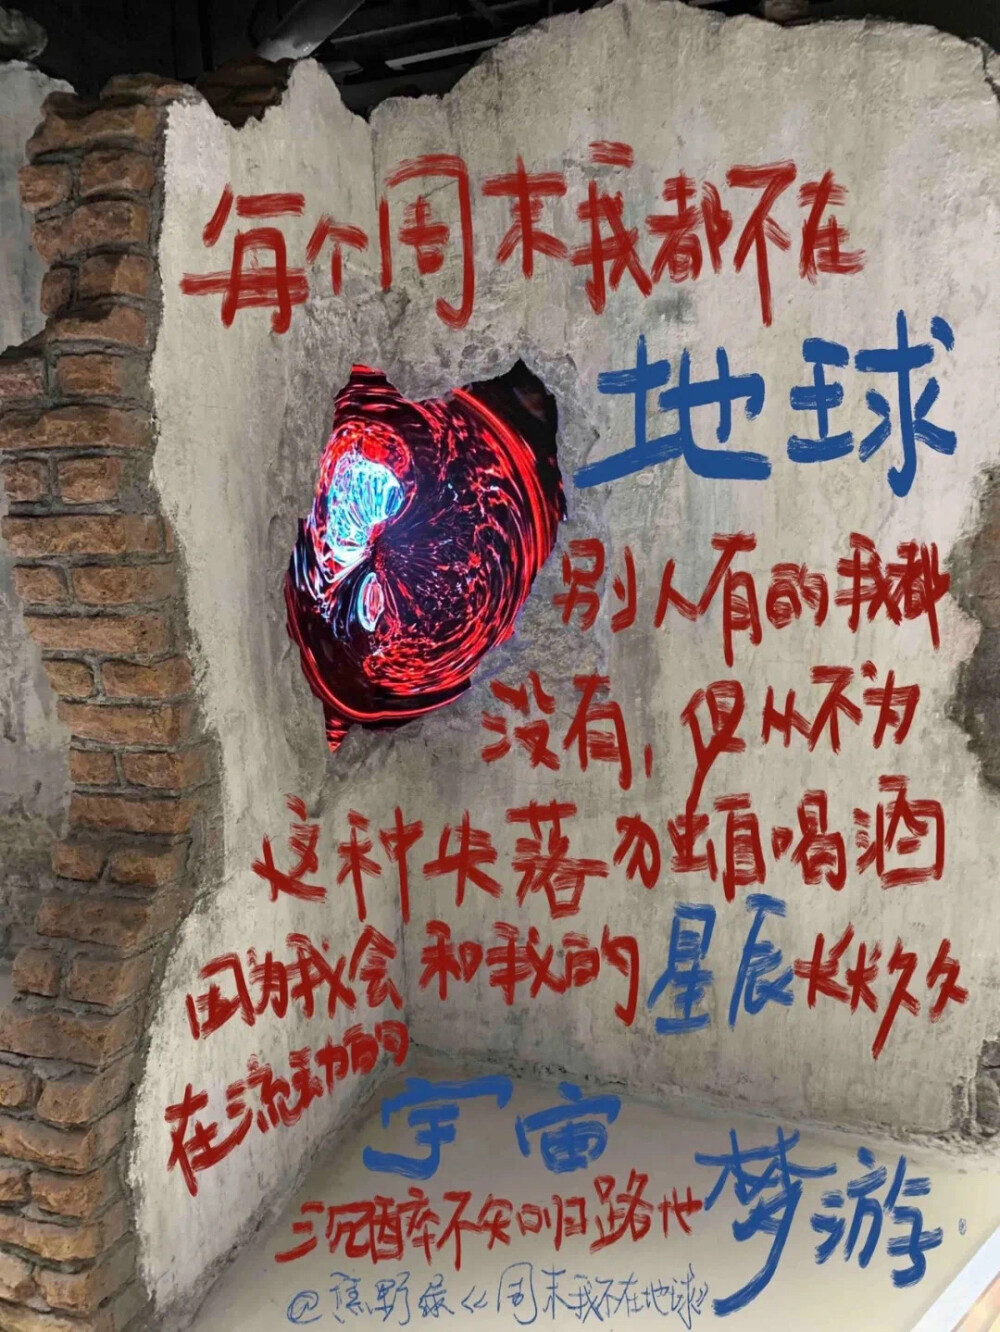 每个周末我都不在
地球
别人有的我都
没有，但从不为
这种失落 喝酒
因为我会和我的星辰长长久久
在流动的
宇宙
沉醉不知归路地梦游。
@焦野绿《周末我不在地球》